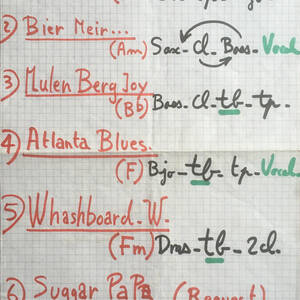 2) Bier Meir...
(Am) Sax - Cl - Bass - Vocal
3) Mulen Berg Joy
(Bb) Bass - Cl - tb - tp -
4) Atlanta Blues.
(F) Bjo - tb - tp - Vocal
5) Whashboard - W.
(Fm) Dms - tb - 2cl.
6) Suggar PaPa (Request)